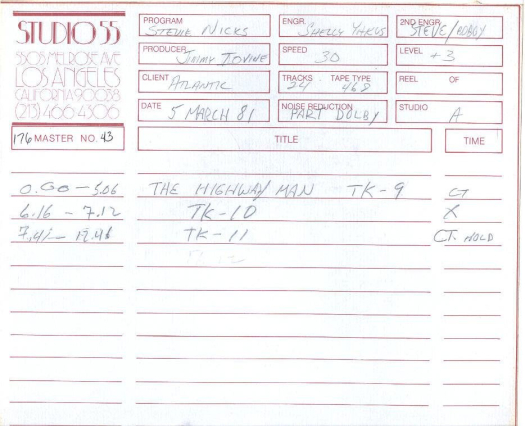 STUDIO 55
5505 MELROSE AVE
LOS ANGELES
CALIFORNIA 90038
(213) 466 4306
PROGRAM STEVIE NICKS
ENGR. SHELLY YAKUS
2ND ENGR. STEVE/BOBBY
PRODUCER JIMMY IOVINE
SPEED 30
LEVEL +3
CLIENT ATLANTIC
TRACKS 24 TAPE TYPE 468
REEL OF
DATE 5 MARCH 81
NOISE REDUCTION PART DOLBY
STUDIO A
176 MASTER NO. 43 TITLE TIME
0.00 - 5.06 THE HIGHWAY MAN TK-9 CT
6.16 - 7.12 TK-10 X
TK-11 CT. HOLD